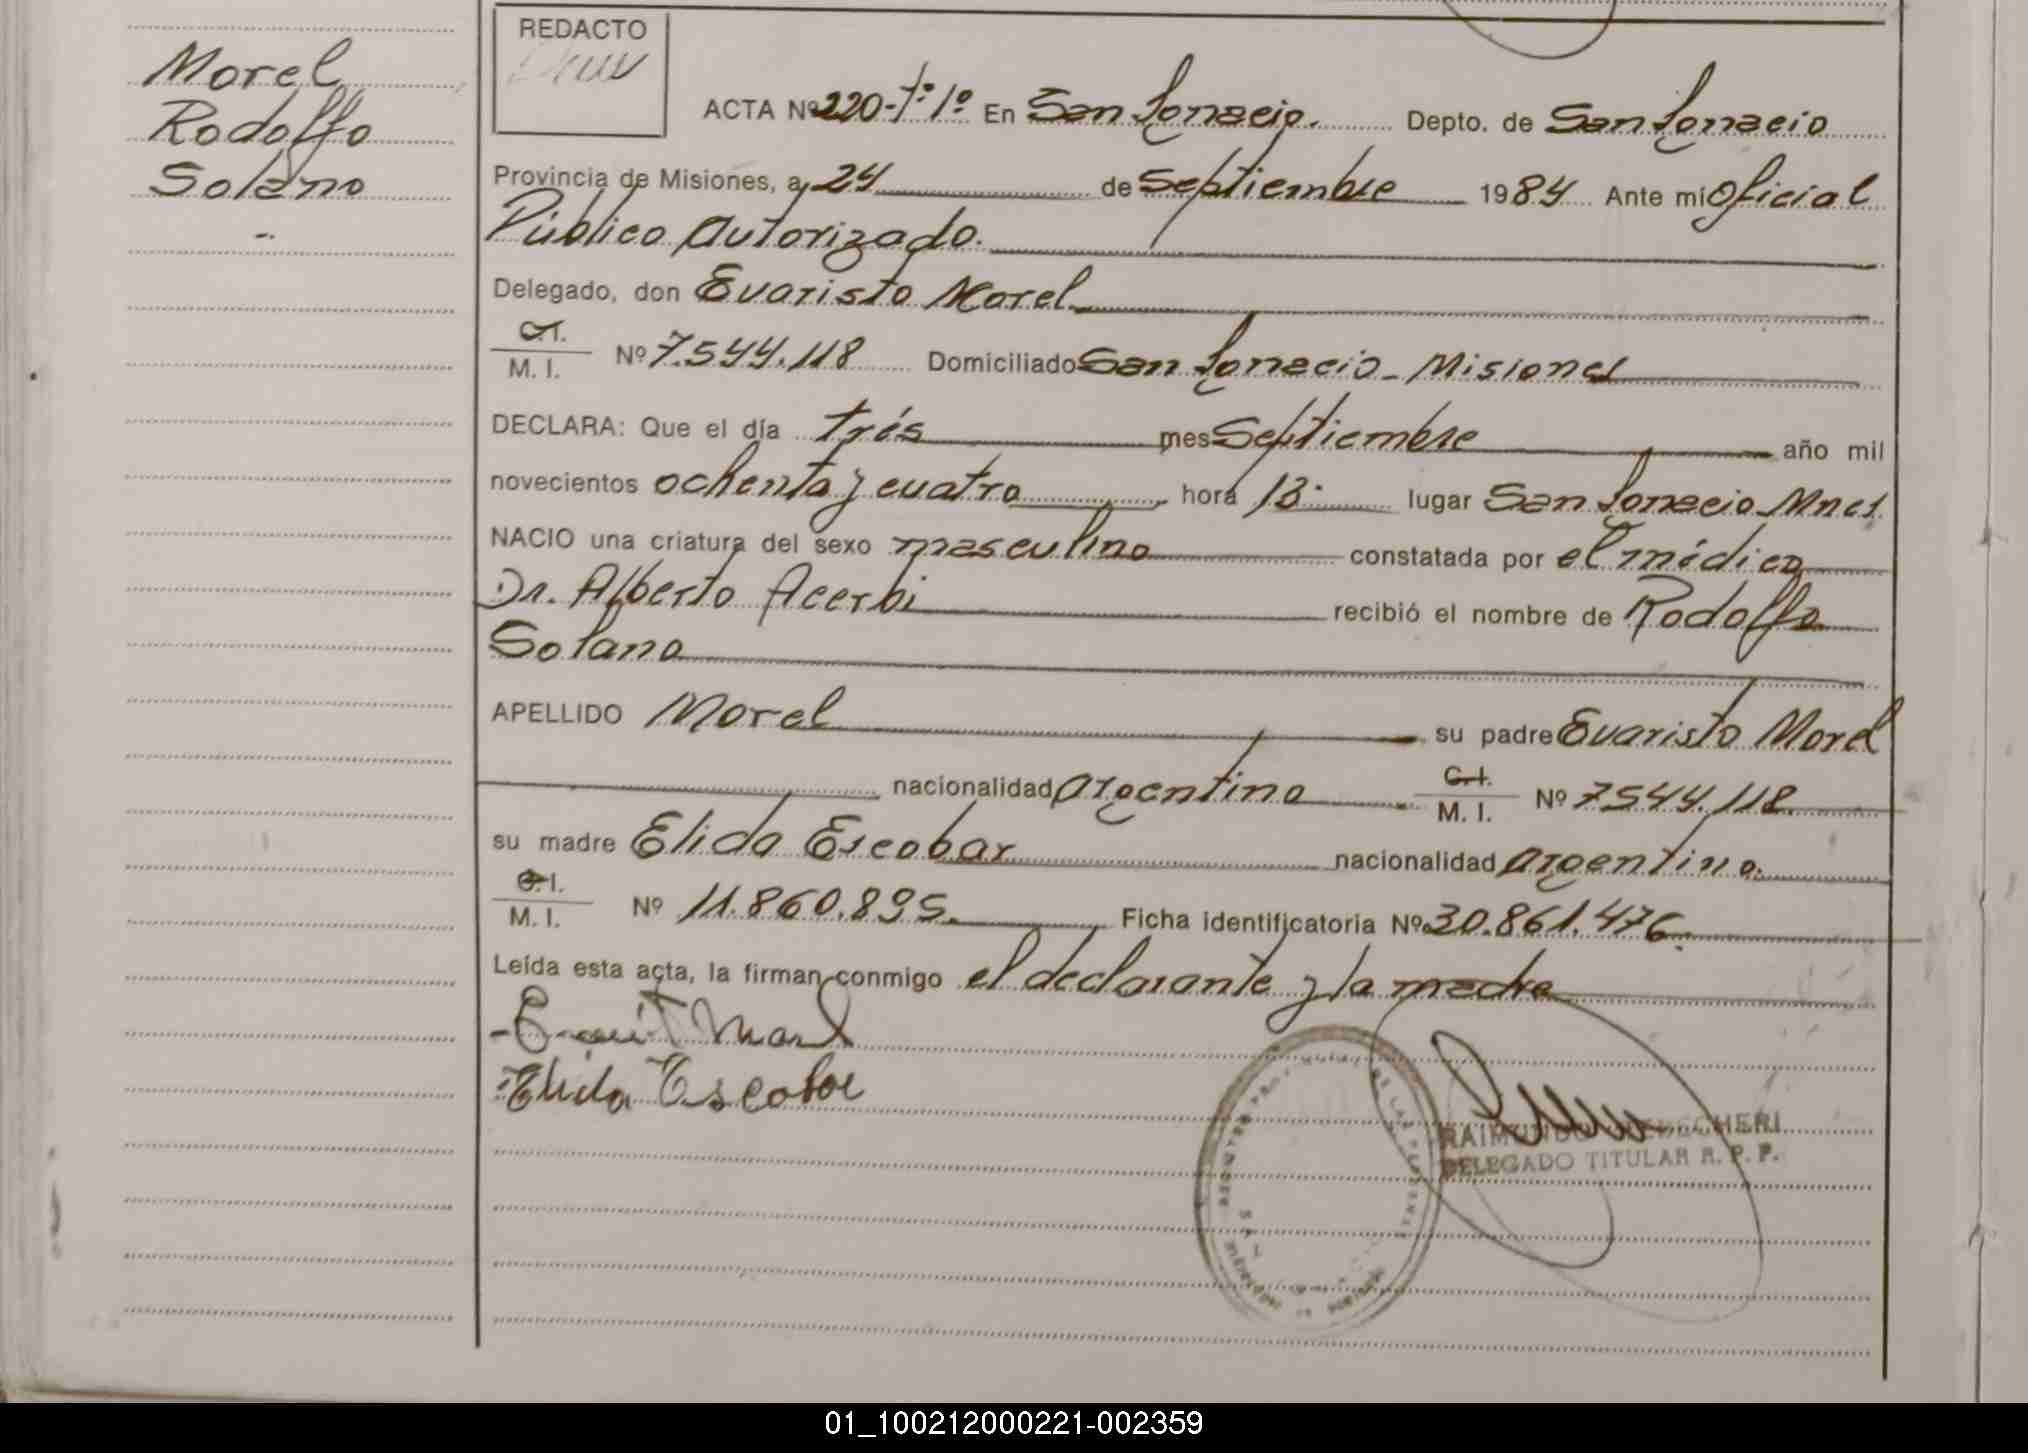 Morel
Rodolfo
Solano
REDACTO
ACTA Nº 220-Tº1º En San Ignacio. Depto. de San Ignacio
Provincia de Misiones, a 24 de Septiembre 1984 Ante mí Oficial
Público Autorizado.
Delegado, don Evaristo Morel
C.I.
M. I. Nº 7.544.118 Domiciliado San Ignacio - Misiones
DECLARA: Que el día trés mes Septiembre año mil
novecientos ochenta y cuatro hora 13: lugar San Ignacio Mnes.
NACIO una criatura del sexo masculino constatada por el médico
Dr. Alberto Acerbi recibió el nombre de Rodolfo
Solano
APELLIDO Morel su padre Evaristo Morel
nacionalidad argentino C.I.
M. I. Nº 7544.118.
su madre Elida Escobar nacionalidad argentina.
C.I.
M. I. Nº 11.860.895. Ficha identificatoria Nº 30.861.476.
Leída esta acta, la firman conmigo el declarante y la madre
Morel
Elida Escobar
RAIMUNDO
DELEGADO TITULAR R. P. P.
01_100212000221-002359